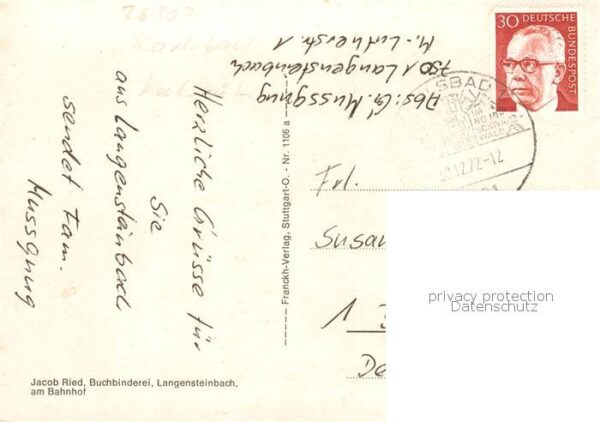 Herzliche Grüsse für
Sie
aus Langensteinbach
sendet Fam.
Mussgnug
Abs: G. Mussgnug
7501 Langensteinbach
M.-Lutherstr. 1
30 DEUTSCHE BUNDESPOST
LSBAD
IM
NÖRD
SCHWARZ
WALD
.12.72-12
Frl.
Susan
1
Franckh-Verlag, Stuttgart-O. - Nr. 1106 a
Jacob Ried, Buchbinderei, Langensteinbach,
am Bahnhof
privacy protection
Datenschutz